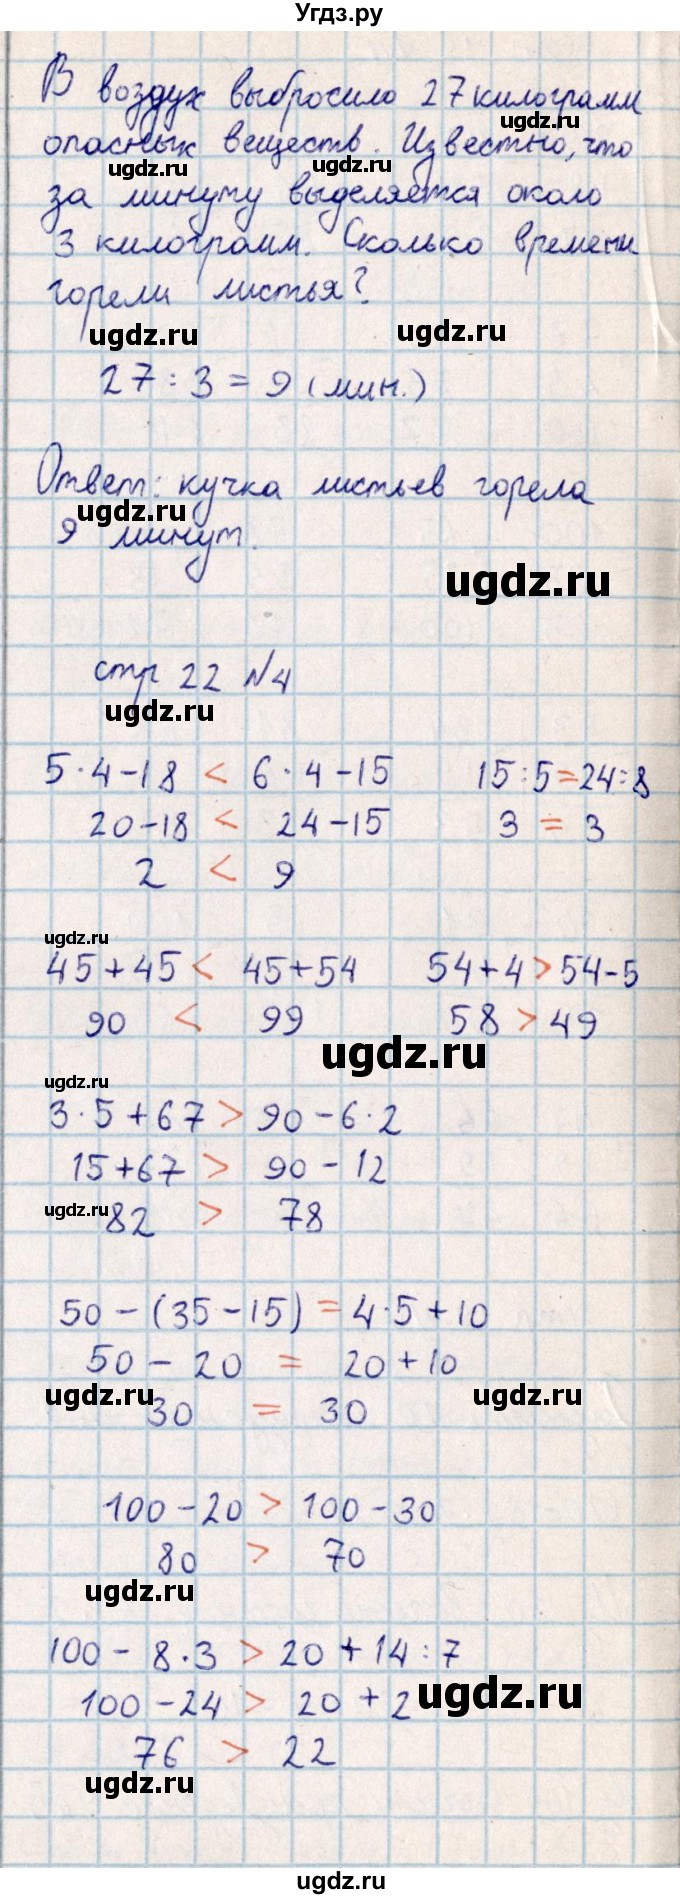 Угдз.ру
В воздух выбросило 27 килограмм
ugdz.ru
опасных веществ. Известно, что
ugdz.ru ugdz.ru
за минуту выделяется около
3 килограмм. Сколько времени
горели листья?
ugdz.ru ugdz.ru
27 : 3 = 9 (мин.)
Ответ: кучка листьев горела
ugdz.ru
9 минут.
ugdz.ru
стр 22 №4
ugdz.ru
5·4-18 < 6·4-15 15:5=24:8
20-18 < 24-15 3 = 3
2 < 9
ugdz.ru
45+45 < 45+54 54+4 > 54-5
90 < 99 58 > 49
ugdz.ru
ugdz.ru
3·5+67 > 90-6·2
15+67 > 90-12
ugdz.ru
82 > 78
50-(35-15) = 4·5+10
50-20 = 20+10
ugdz.ru ugdz.ru
30 = 30
100-20 > 100-30
80 > 70
ugdz.ru
100-8·3 > 20+14:7
100-24 > 20+2
ugdz.ru
76 > 22
ugdz.ru
ugdz.ru